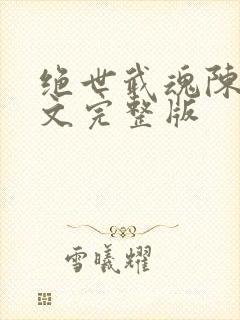 绝世武魂陈
文完整版
雪曦耀